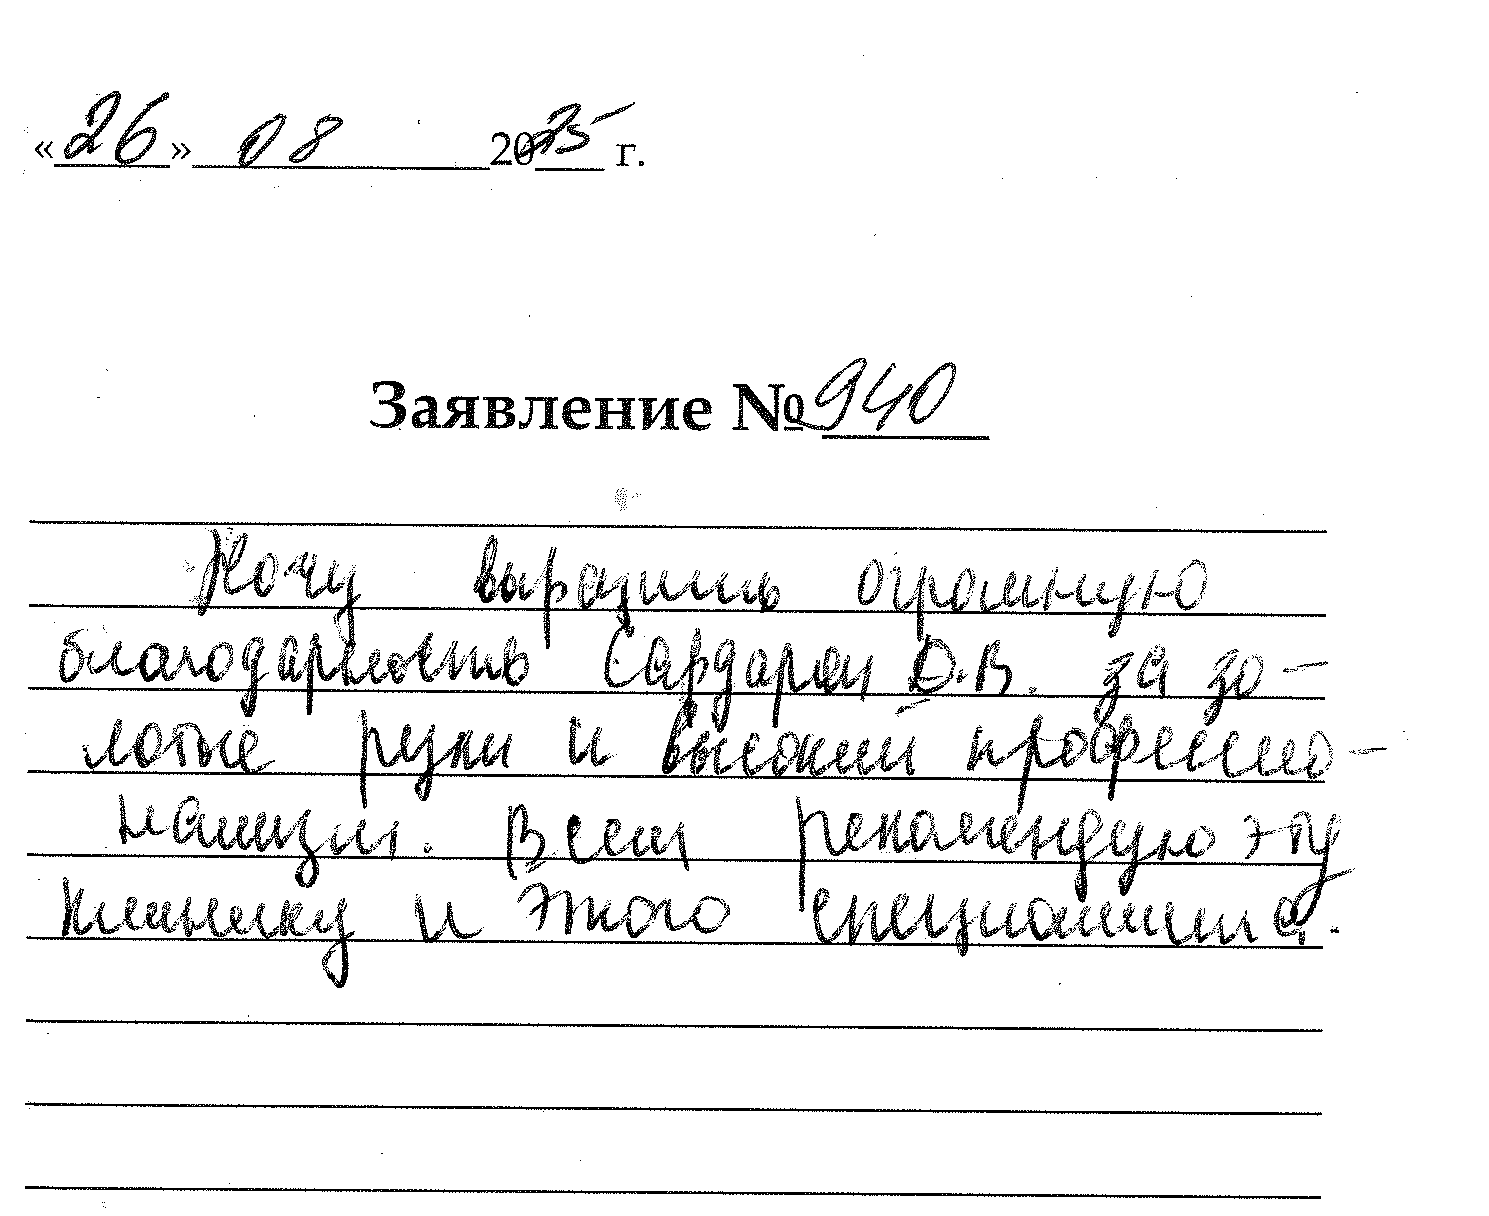 «26» 08 2025 г.
Заявление № 940
Хочу выразить огромную
благодарность Сардарян О.В. за зо-
лотые руки и высокий профессио-
нализм. Всем рекомендую эту
клинику и этого специалиста.